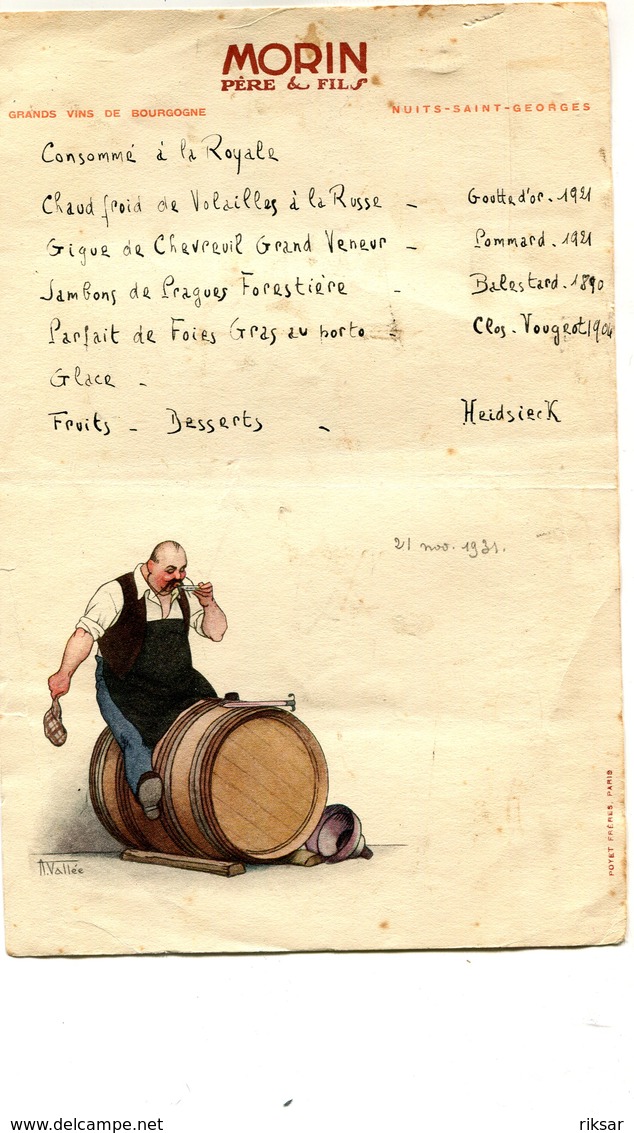 MORIN
PÈRE & FILS
GRANDS VINS DE BOURGOGNE
NUITS-SAINT-GEORGES
Consommé à la Royale
Chaud froid de Volailles à la Russe - Goutte d'or. 1921
Gigue de Chevreuil Grand Veneur - Pommard. 1921
Jambons de Pragues Forestière - Balestard. 1890
Parfait de Foies Gras au porto - Clos-Vougeot 1904
Glace -
Fruits - Desserts - Heidsieck
21 nov. 1931.
A. Vallée
POYET FRÈRES. PARIS
delcampe.net
riksar